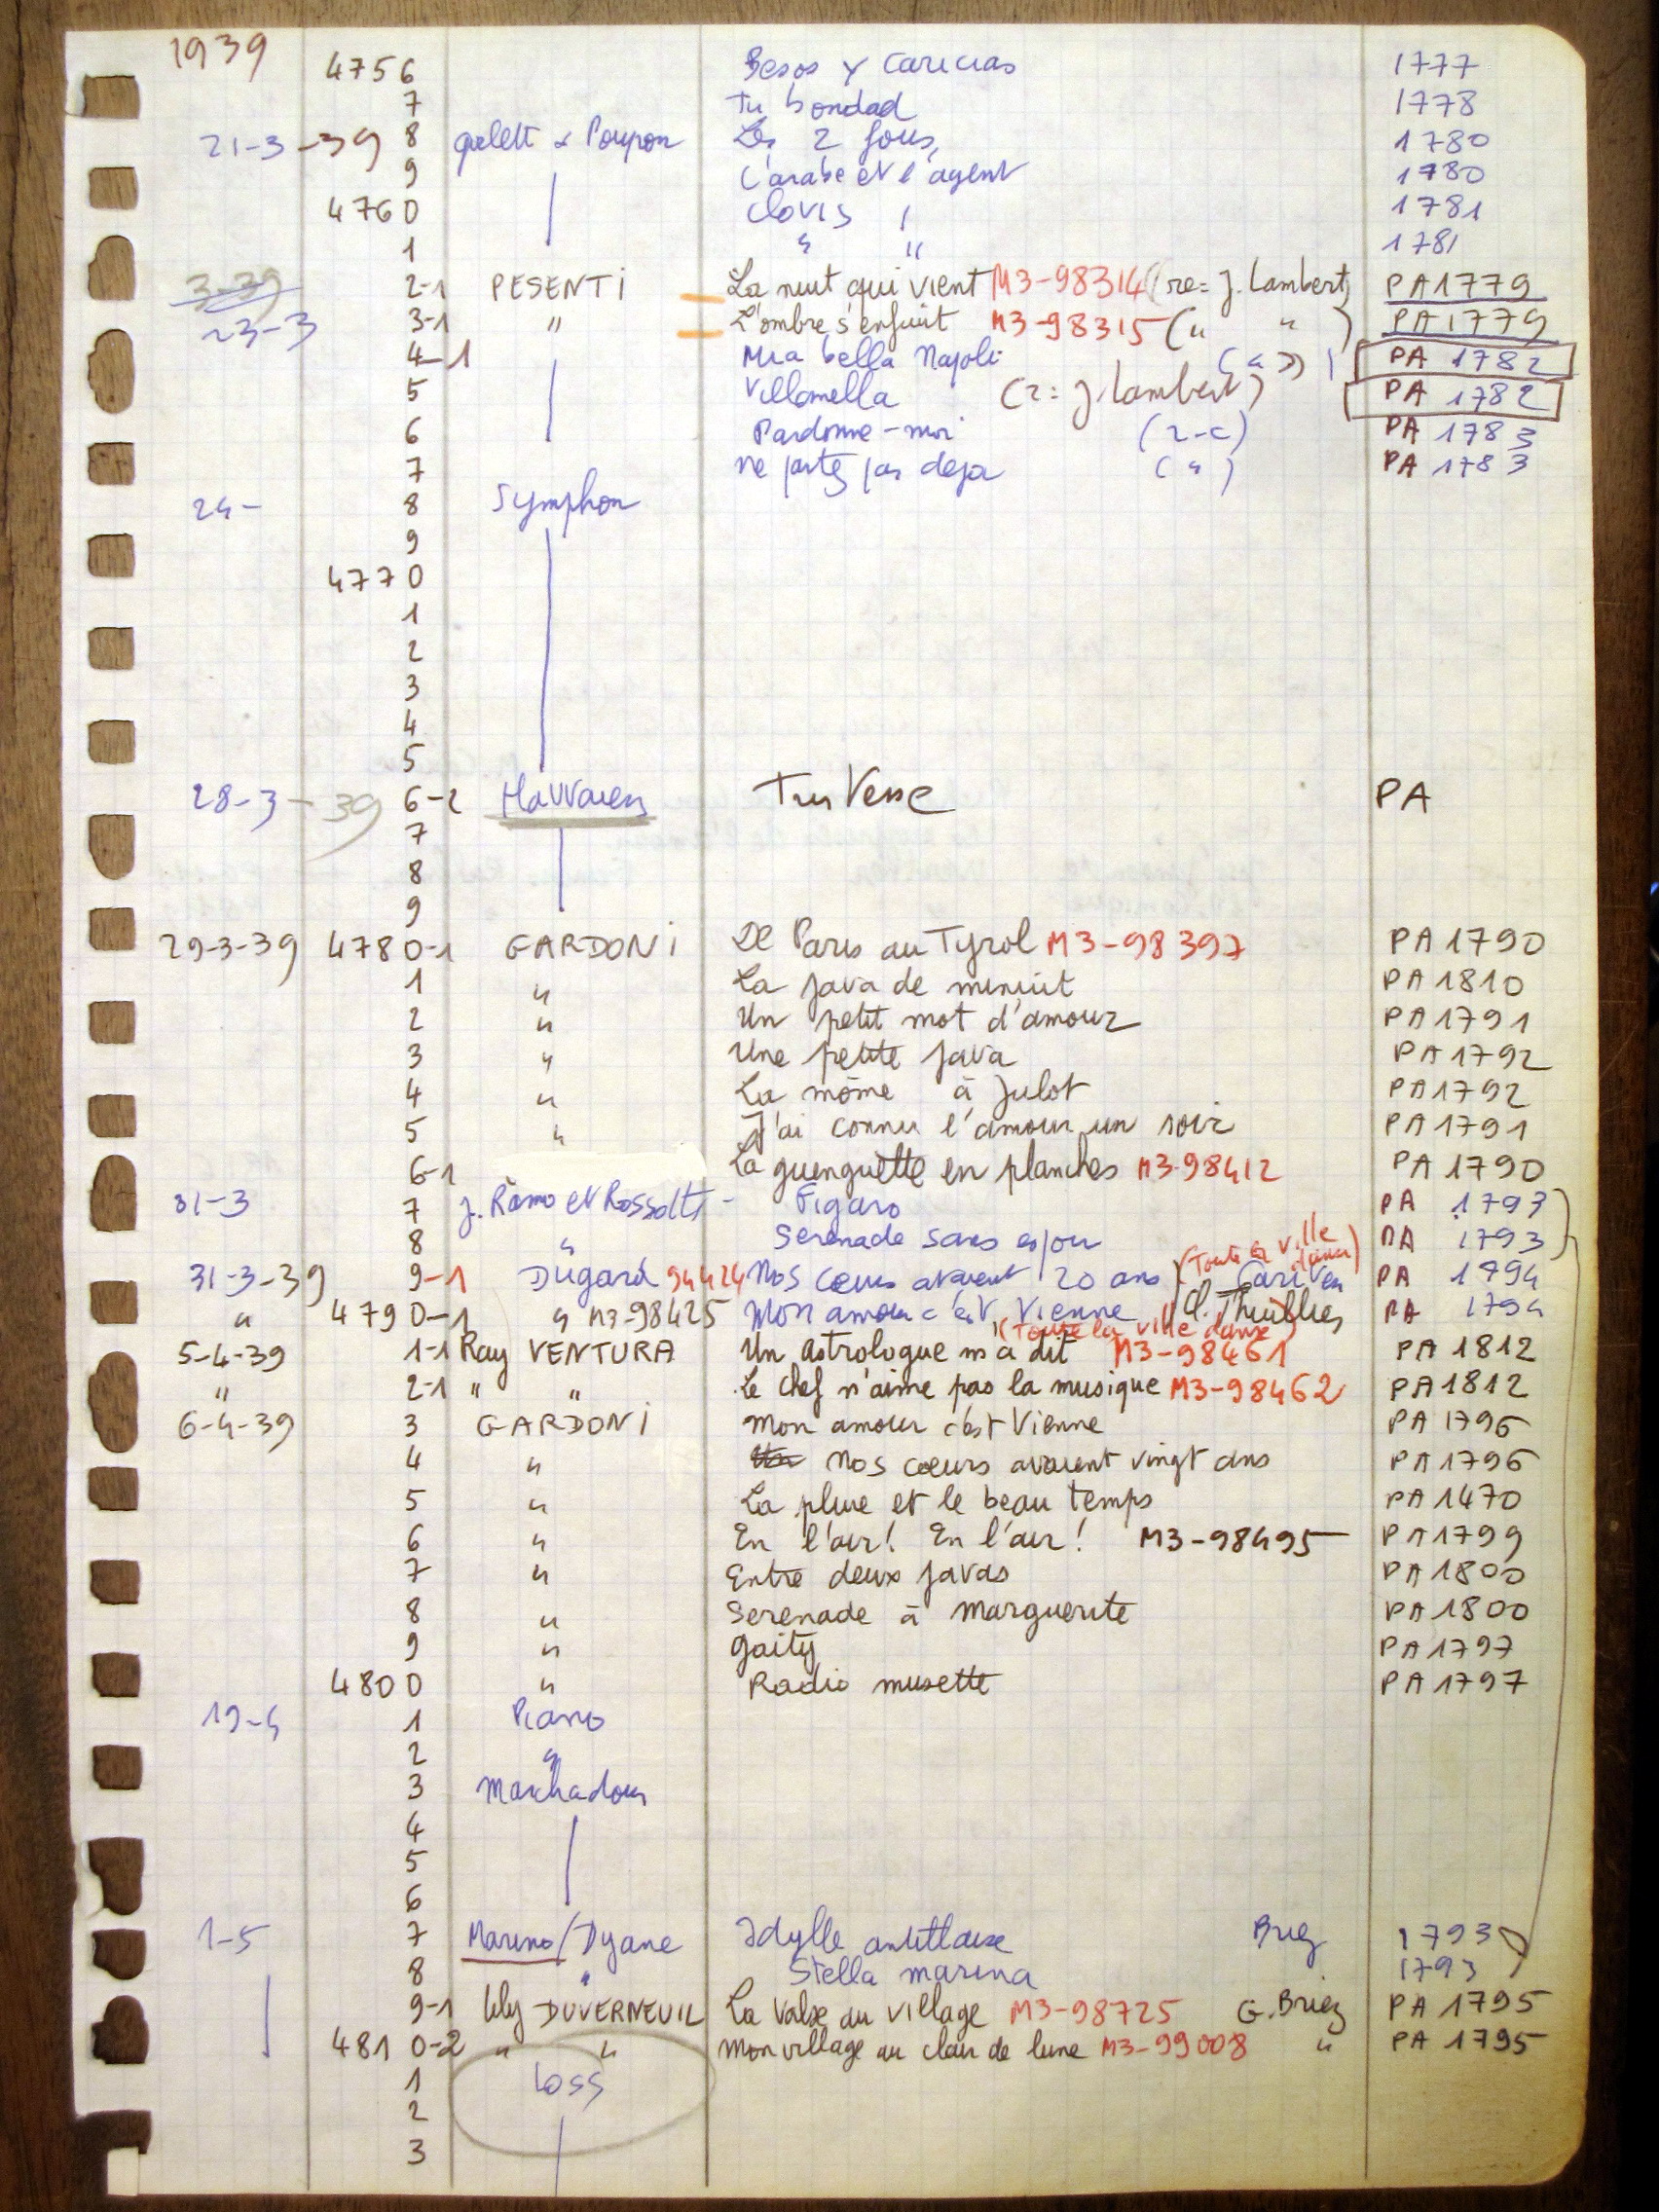 1939 4756 Besos y caricias 1777
7 Tu bondad 1778
21-3-39 8 & Poupon Les 2 fous, 1780
9 L'arabe et l'agent 1780
4760 Clovis 1781
1 " " 1781
3-39 2-1 PESENTi La nuit qui vient M3-98314 (re= J. Lambert) PA1779
23-3 3-1 " L'ombre s'enfuit M3-98315 (" ") PA1779
4-1 Mia bella Napoli (") PA 1782
5 Villanella (r= J. Lambert) PA 1782
6 Pardonne-moi (r-c) PA 1783
7 ne partez pas deja (") PA 1783
24- 8 Symphon
9
4770
1
2
3
4
5
28-3-39 6-2 PA
7
8
9
29-3-39 4780-1 GARDONi De Paris au Tyrol M3-98397 PA1790
1 " La java de minuit PA1810
2 " Un petit mot d'amour PA1791
3 " Une petite java PA1792
4 " La môme à Julot PA1792
5 " J'ai connu l'amour un soir PA1791
6-1 La guenguette en planches M3-98412 PA1790
31-3 7 J. Ramo et Rossotti - Figaro PA 1793
8 " Serenade sans espoir PA 1793
31-3-39 9-1 Dugard 94424 Nos coeurs avaient 20 ans (Toute la ville danse) PA 1794
" 4790-1 " M3-98425 Mon amour c'est Vienne PA 1794
(Toute la ville danse)
5-4-39 1-1 Ray VENTURA Un astrologue m'a dit M3-98461 PA1812
" 2-1 " " Le chef n'aime pas la musique M3-98462 PA1812
6-4-39 3 GARDONi Mon amour c'est Vienne PA1796
4 " Nos coeurs avaient vingt ans PA1796
5 " La pluie et le beau temps PA1470
6 " En l'air! En l'air! M3-98495 PA1799
7 " Entre deux javas PA1800
8 " Serenade à Marguerite PA1800
9 " Gaity PA1797
4800 " Radio musette PA1797
19-4 1 Piano
2 "
3 Marchadour
4
5
6
1-5 7 Marino/Dyane Idylle antillaise Briez 1793
8 " Stella marina 1793
9-1 Lily DUVERNEUIL La Valse du village M3-98725 G. Briez PA 1795
4810-2 " " Mon village au clair de lune M3-99008 " PA 1795
1 Loss
2
3